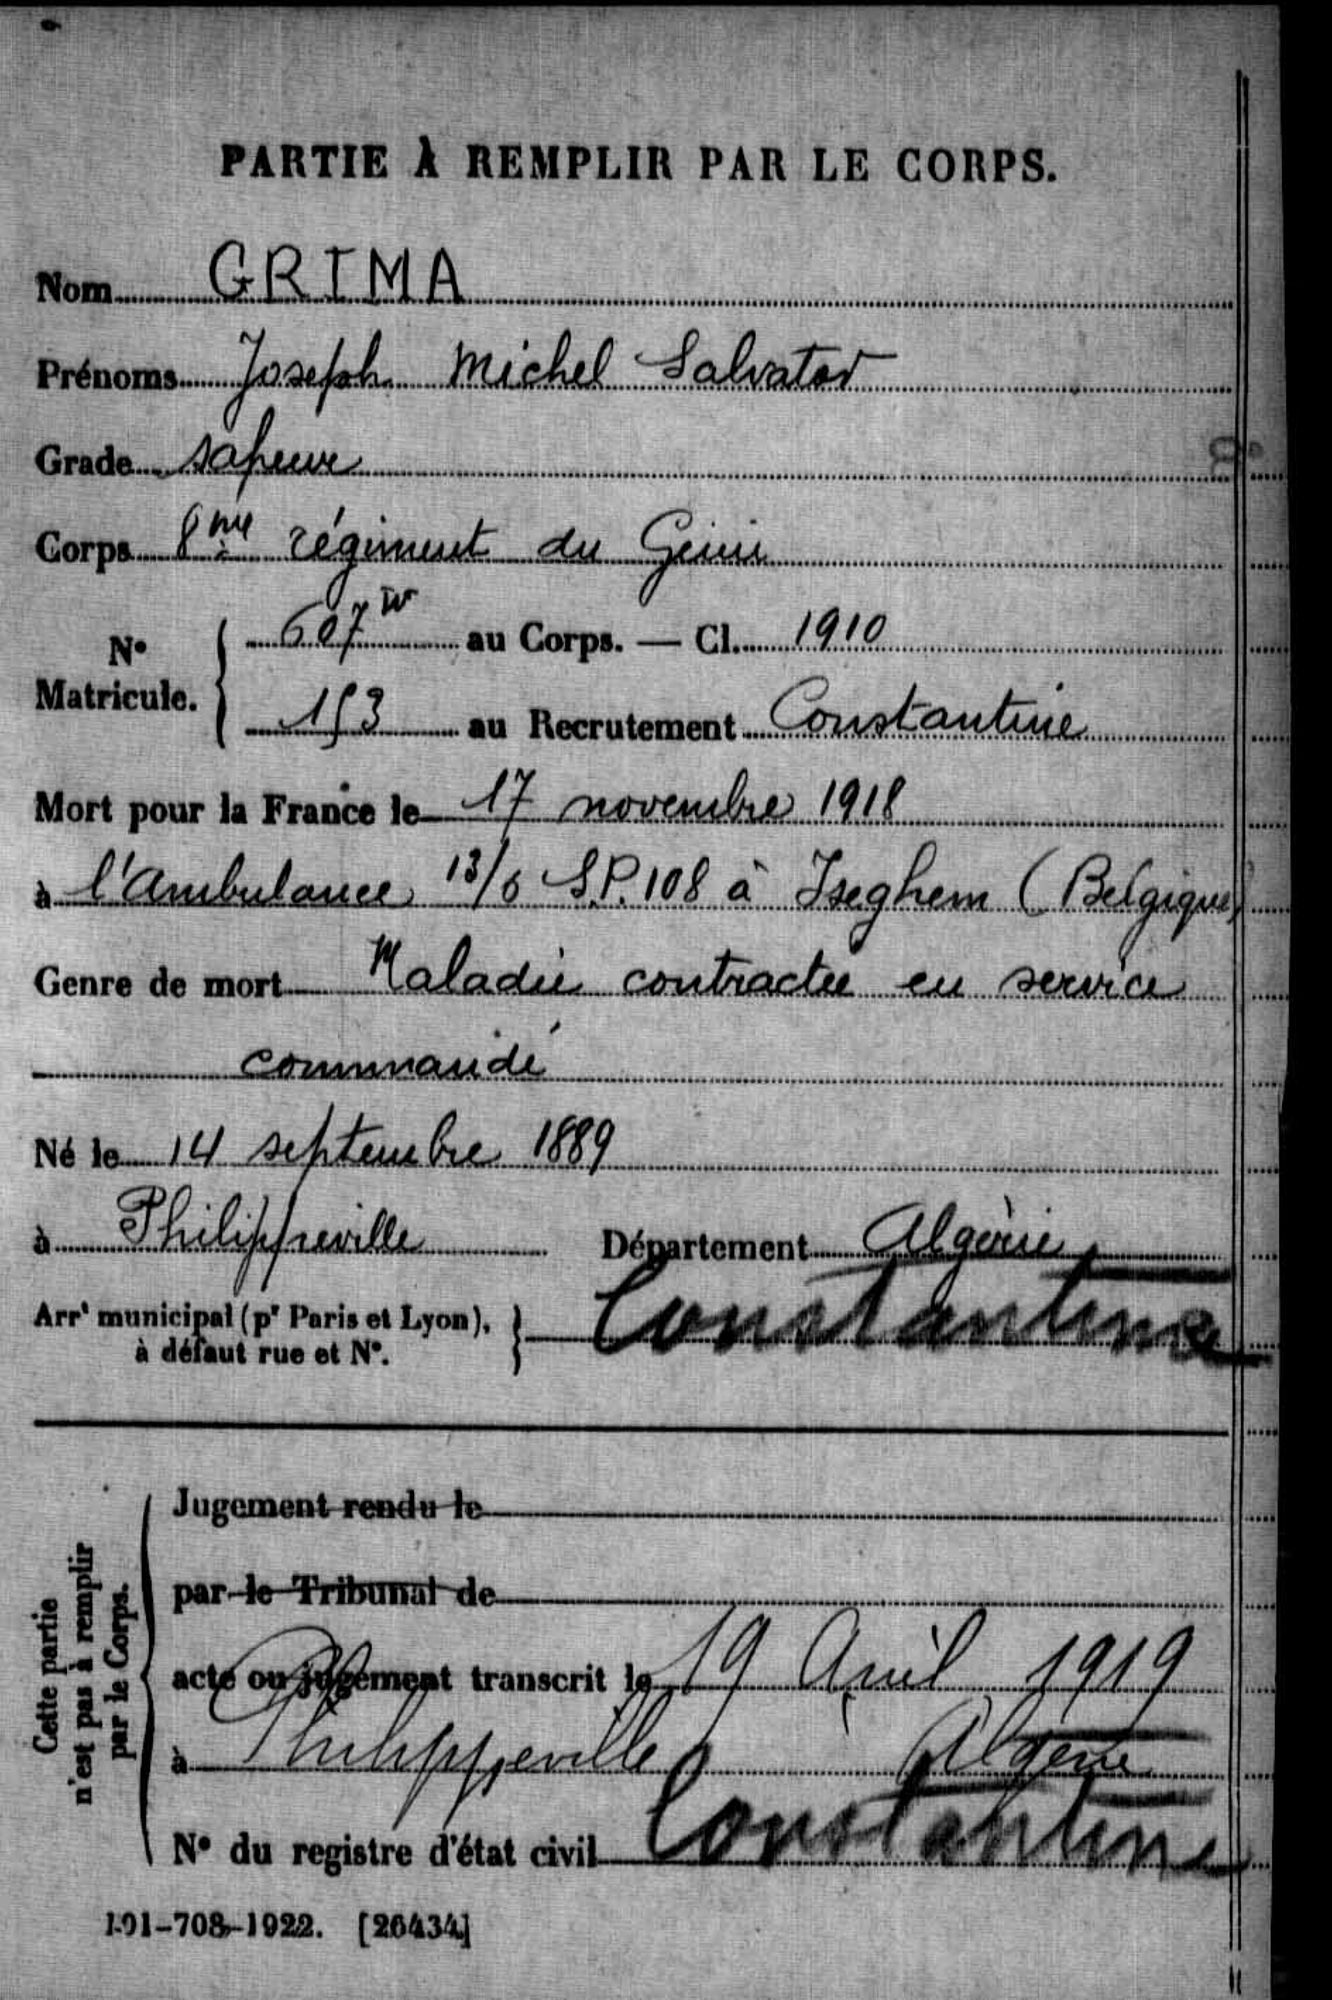 PARTIE À REMPLIR PAR LE CORPS.
Nom GRIMA
Prénoms Joseph Michel Salvator
Grade sapeur
Corps 8me régiment du Génie
N° Matricule. { 607 au Corps. — Cl. 1910
153 au Recrutement Constantine
Mort pour la France le 17 novembre 1918
à l'Ambulance 13/6 S.P. 108 à Iseghem (Belgique)
Genre de mort Maladie contractée en service
commandé
Né le 14 septembre 1889
à Philippeville Département Algérie
Arrt municipal (pr Paris et Lyon), à défaut rue et N°. } Constantine
Cette partie n'est pas à remplir par le Corps.
Jugement rendu le
par le Tribunal de
acte ou jugement transcrit le 19 Avril 1919
à Philippeville Algérie
N° du registre d'état civil Constantine
101-708-1922. [26434]